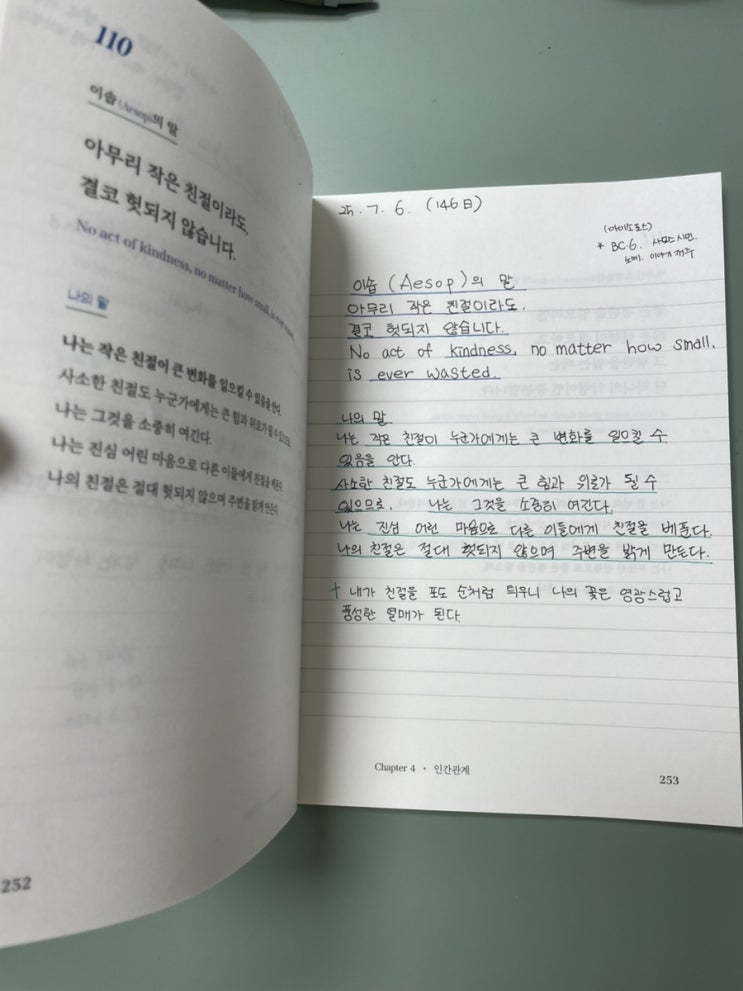 110
이솝(Aesop)의 말
아무리 작은 친절이라도,
결코 헛되지 않습니다.
No act of kindness, no matter how small, is ever wasted.
나의 말
나는 작은 친절이 큰 변화를 일으킬 수 있음을 안다.
사소한 친절도 누군가에게는 큰 힘과 위로가 될 수 있으므로
나는 그것을 소중히 여긴다.
나는 진심 어린 마음으로 다른 이들에게 친절을 베푼다.
나의 친절은 절대 헛되지 않으며 주변을 밝게 만든다.
252
25. 7. 6. (146日)
(아이소포스)
* BC.6. 사모스 시민.
노예. 이야기 저주
이솝 (Aesop)의 말
아무리 작은 친절이라도.
결코 헛되지 않습니다.
No act of kindness, no matter how small,
is ever wasted.
나의 말
나는 작은 친절이 누군가에게는 큰 변화를 일으킬 수
있음을 안다.
사소한 친절도 누군가에게는 큰 힘과 위로가 될 수
있으므로, 나는 그것을 소중히 여긴다.
나는 진심 어린 마음으로 다른 이들에게 친절을 베푼다.
나의 친절은 절대 헛되지 않으며 주변을 밝게 만든다.
+ 내가 친절을 포도 순처럼 틔우니 나의 꽃은 영광스럽고
풍성한 열매가 된다.
Chapter 4 · 인간관계
253